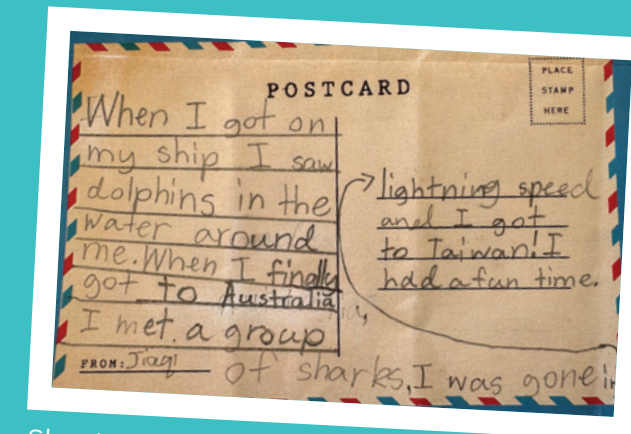 POSTCARD
PLACE
STAMP
HERE
When I got on
my ship I saw
dolphins in the
water around
me. When I finally
got to Australia,
I met a group
of sharks, I was gone in
lightning speed
and I got
to Taiwan! I
had a fun time.
FROM: Jiaqi